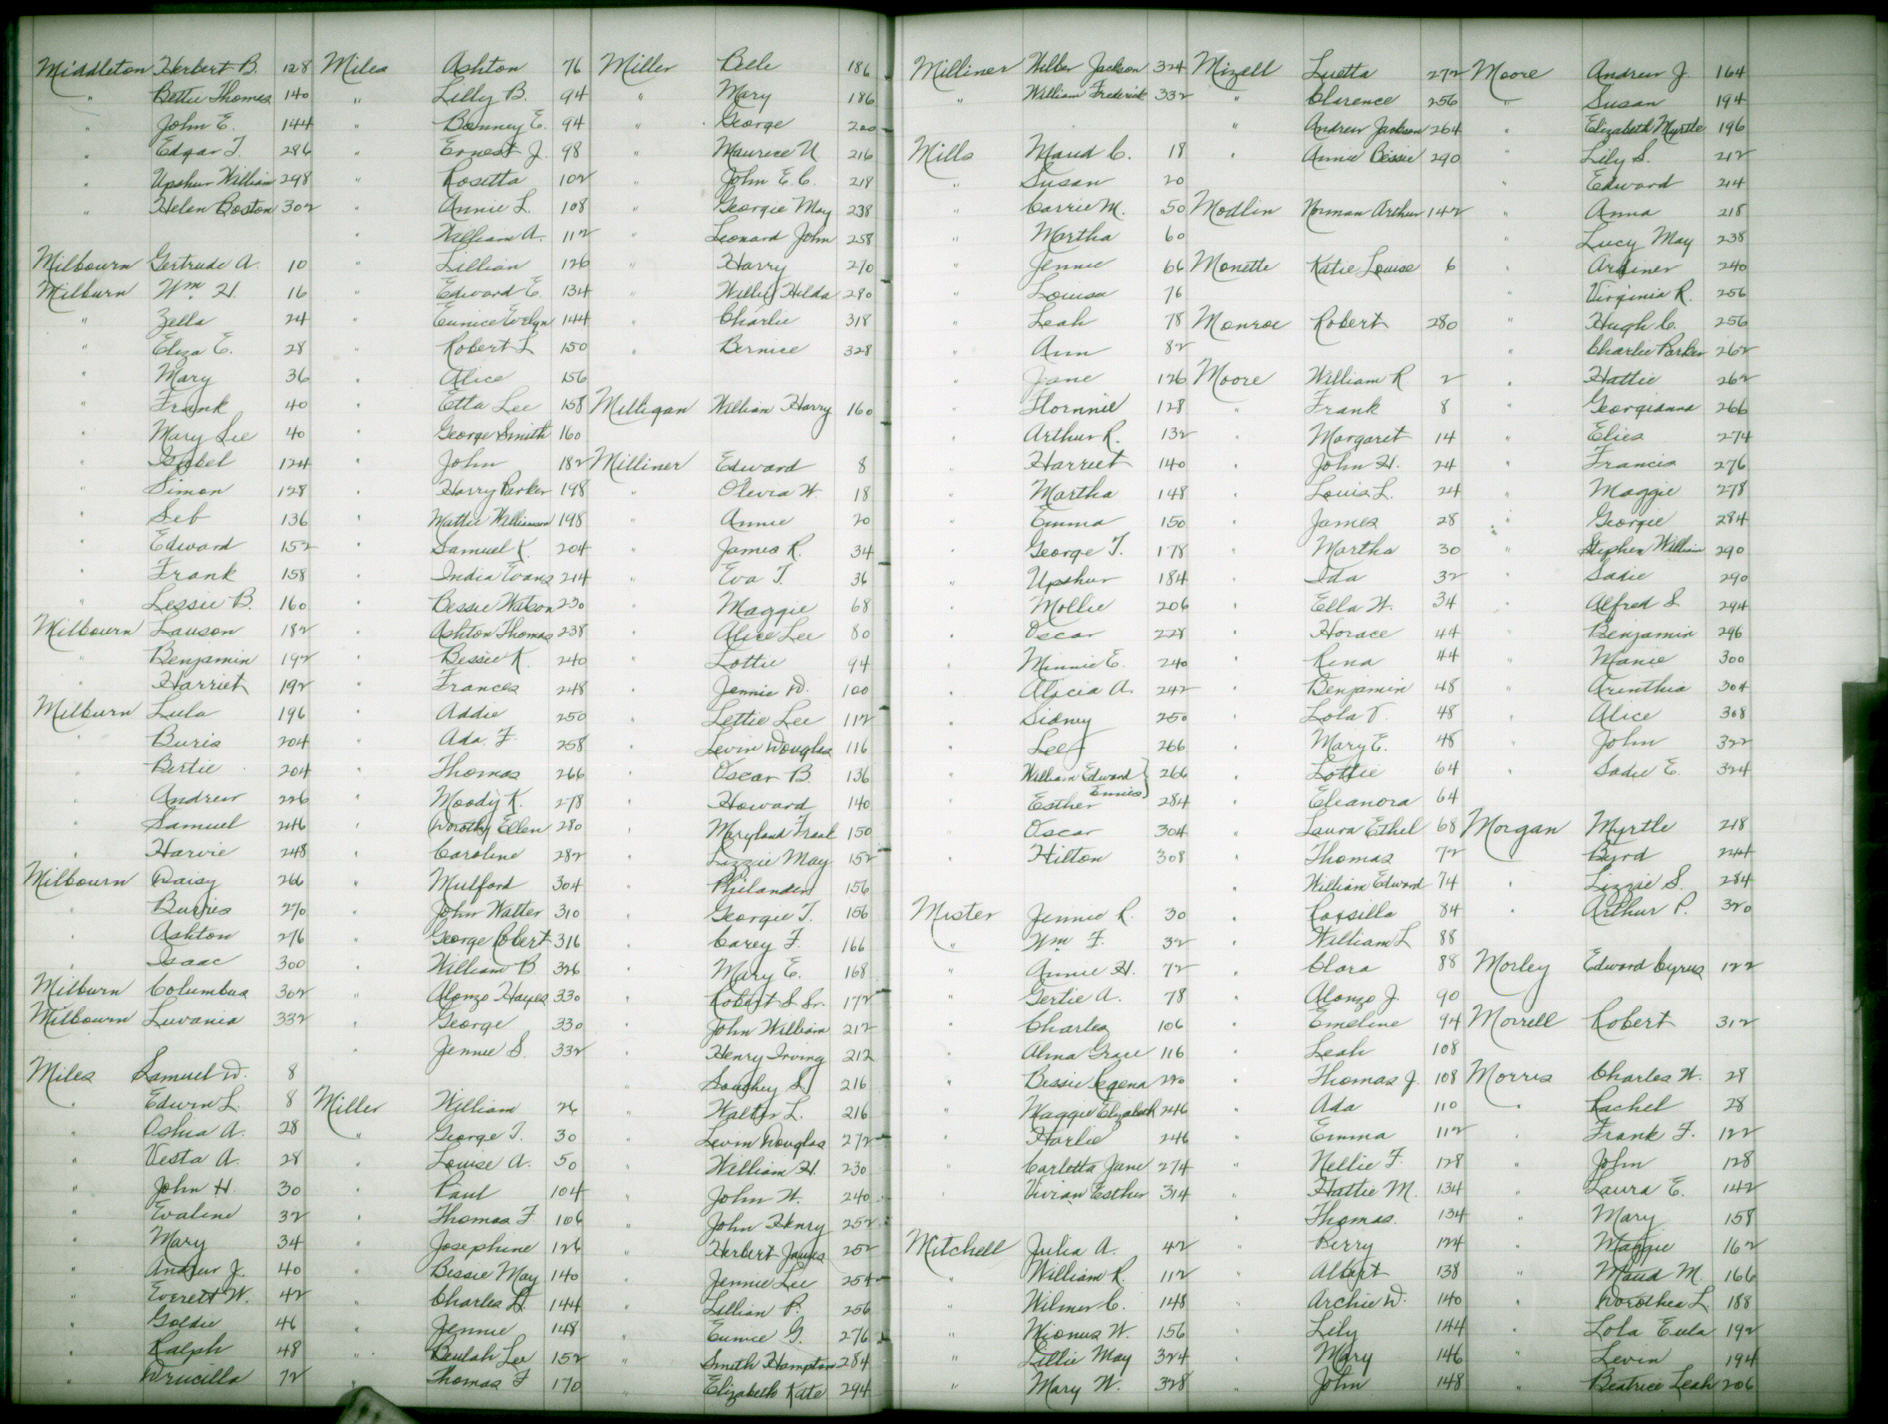 Middleton Herbert B. 128
" Bettie Thomas 140
" John E. 144
" Edgar T. 286
" Upshur William 298
" Helen Boston 302
Milbourn Gertrude A. 10
Milburn Wm H. 16
" Zella 24
" Eliza E. 28
" Mary 36
" Frank 40
" Mary Sue 40
" Isabel 124
" Simon 128
" Seb 136
" Edward 152
" Frank 158
" Lessie B. 160
Milbourn Lauson 182
" Benjamin 192
" Harriet 192
Milburn Lula 196
" Buris 204
" Bertie 204
" Andrew 226
" Samuel 246
" Harvie 248
Milbourn Daisy 266
" Burris 270
" Ashton 276
" Isaac 300
Milburn Columbus 302
Milbourn Luvania 332
Miles Samuel W. 8
" Edwin L. 8
" Oshia A. 28
" Vesta A. 28
" John H. 30
" Evaline 32
" Mary 34
" Andrew J. 40
" Everett W. 42
" Goldie 46
" Ralph 48
" Drucilla 72
Miles Ashton 76
" Lilly B. 94
" Bonney E. 94
" Ernest J. 98
" Rosetta 102
" Annie L. 108
" William A. 112
" Lillian 126
" Edward E. 134
" Eunice Evelyn 144
" Robert L 150
" Alice 156
" Etta Lee 158
" George Smith 160
" John 182
" Harry Parker 198
" Mattie Williamson 198
" Samuel K. 204
" India Evans 214
" Bessie Watson 230
" Ashton Thomas 238
" Bessie K. 240
" Frances 248
" Addie 250
" Ada F. 258
" Thomas 266
" Moody K. 278
" Dorothy Ellen 280
" Caroline 282
" Mulford 304
" John Walter 310
" George Robert 316
" William B 326
" Alonzo Hayes 330
" George 330
" Jennie S. 332
Miller William 26
" George T. 30
" Louise A. 50
" Paul 104
" Thomas F. 106
" Josephine 126
" Bessie May 140
" Charles H. 144
" Jennie 148
" Beulah Lee 152
" Thomas F 170
Miller Belle 186
" Mary 186
" George 200
" Maurice N 216
" John E. C. 218
" Georgie May 238
" Leonard John 258
" Harry 270
" Willie Hilda 280
" Charlie 318
" Bernice 328
Milligan William Harry 160
Milliner Edward 8
" Olevia W. 18
" Annie 20
" James R. 34
" Eva T. 36
" Maggie 68
" Alice Lee 80
" Lottie 94
" Jennie D. 100
" Lettie Lee 112
" Levin Douglas 116
" Oscar B. 136
" Howard 140
" Maryland Frank 150
" Lizzie May 152
" Philander 156
" Georgie T. 156
" Carey F. 166
" Mary E. 168
" Robert S Sr. 172
" John William 212
" Henry Irving 212
" Southey S. 216
" Walter L. 216
" Levin Douglas 272
" William H. 230
" John W. 240
" John Henry 252
" Herbert James 252
" Jennie Lee 254
" Lillian P. 256
" Eunice G. 276
" Smith Hampton 284
" Elizabeth Kate 294
Milliner Wilber Jackson 324
" William Frederick 332
Mills Maud C. 18
" Susan 20
" Carrie M. 50
" Martha 60
" Jennie 66
" Louisa 76
" Leah 78
" Ann 82
" Jane 126
" Florinie 128
" Arthur R. 132
" Harriet 140
" Martha 148
" Emma 150
" George T. 178
" Upshur 184
" Mollie 206
" Oscar 228
" Minnie E. 240
" Alicia A. 242
" Sidney 250
" Lee 266
" William Edward Ennis } 266
" Esther 284
" Oscar 304
" Hilton 308
Mister Jennie R. 30
" Wm F. 32
" Annie H. 72
" Gertie A. 78
" Charles 106
" Alma Grace 116
" Bessie Regena 220
" Maggie Elizabeth 246
" Harlie 246
" Carletta Jane 274
" Vivian Esther 314
Mitchell Julia A. 42
" William R. 112
" Wilmer C. 148
" Mionus W. 156
" Lillie May 324
" Mary W. 328
Mizell Luetta 272
" Clarence 256
" Andrew Jackson 264
" Annie Bessie 290
Modlin Norman Arthur 142
Monette Katie Louise 6
Monroe Robert 280
Moore William R 2
" Frank 8
" Margaret 14
" John H. 24
" Louis L. 24
" James 28
" Martha 30
" Ida 32
" Ella W. 34
" Horace 44
" Rena 44
" Benjamin 48
" Lola V. 48
" Mary E. 48
" Lottie 64
" Eleanora 64
" Laura Ethel 68
" Thomas 72
" William Edward 74
" Rossilla 84
" William L 88
" Clara 88
" Alonzo J. 90
" Emeline 94
" Leah 108
" Thomas J. 108
" Ada 110
" Emma 112
" Nellie F. 128
" Hattie M. 134
" Thomas. 134
" Berry 124
" Albert 138
" Archie W. 140
" Lily 144
" Mary 146
" John 148
Moore Andrew J. 164
" Susan 194
" Elizabeth Myrtle 196
" Lily S. 212
" Edward 214
" Anna 218
" Lucy May 238
" Ardiner 240
" Virginia R. 256
" Hugh C. 256
" Charlie Parker 262
" Hattie 262
" Georgianna 266
" Elies 274
" Francis 276
" Maggie 278
" Georgie 284
" Stephen William 290
" Sadie 290
" Alfred S. 294
" Benjamin 296
" Manie 300
" Arinthia 304
" Alice 308
" John 322
" Sadie E. 324
Morgan Myrtle 218
" Byrd 244
" Lizzie S. 284
" Arthur P. 320
Morley Edward Cyrus 122
Morrell Robert 312
Morris Charles W. 28
" Rachel 28
" Frank F. 122
" John 128
" Laura E. 142
" Mary 158
" Maggie 162
" Maud M. 166
" Dorothea L 188
" Lola Eula 192
" Levin 194
" Beatrice Leah 206